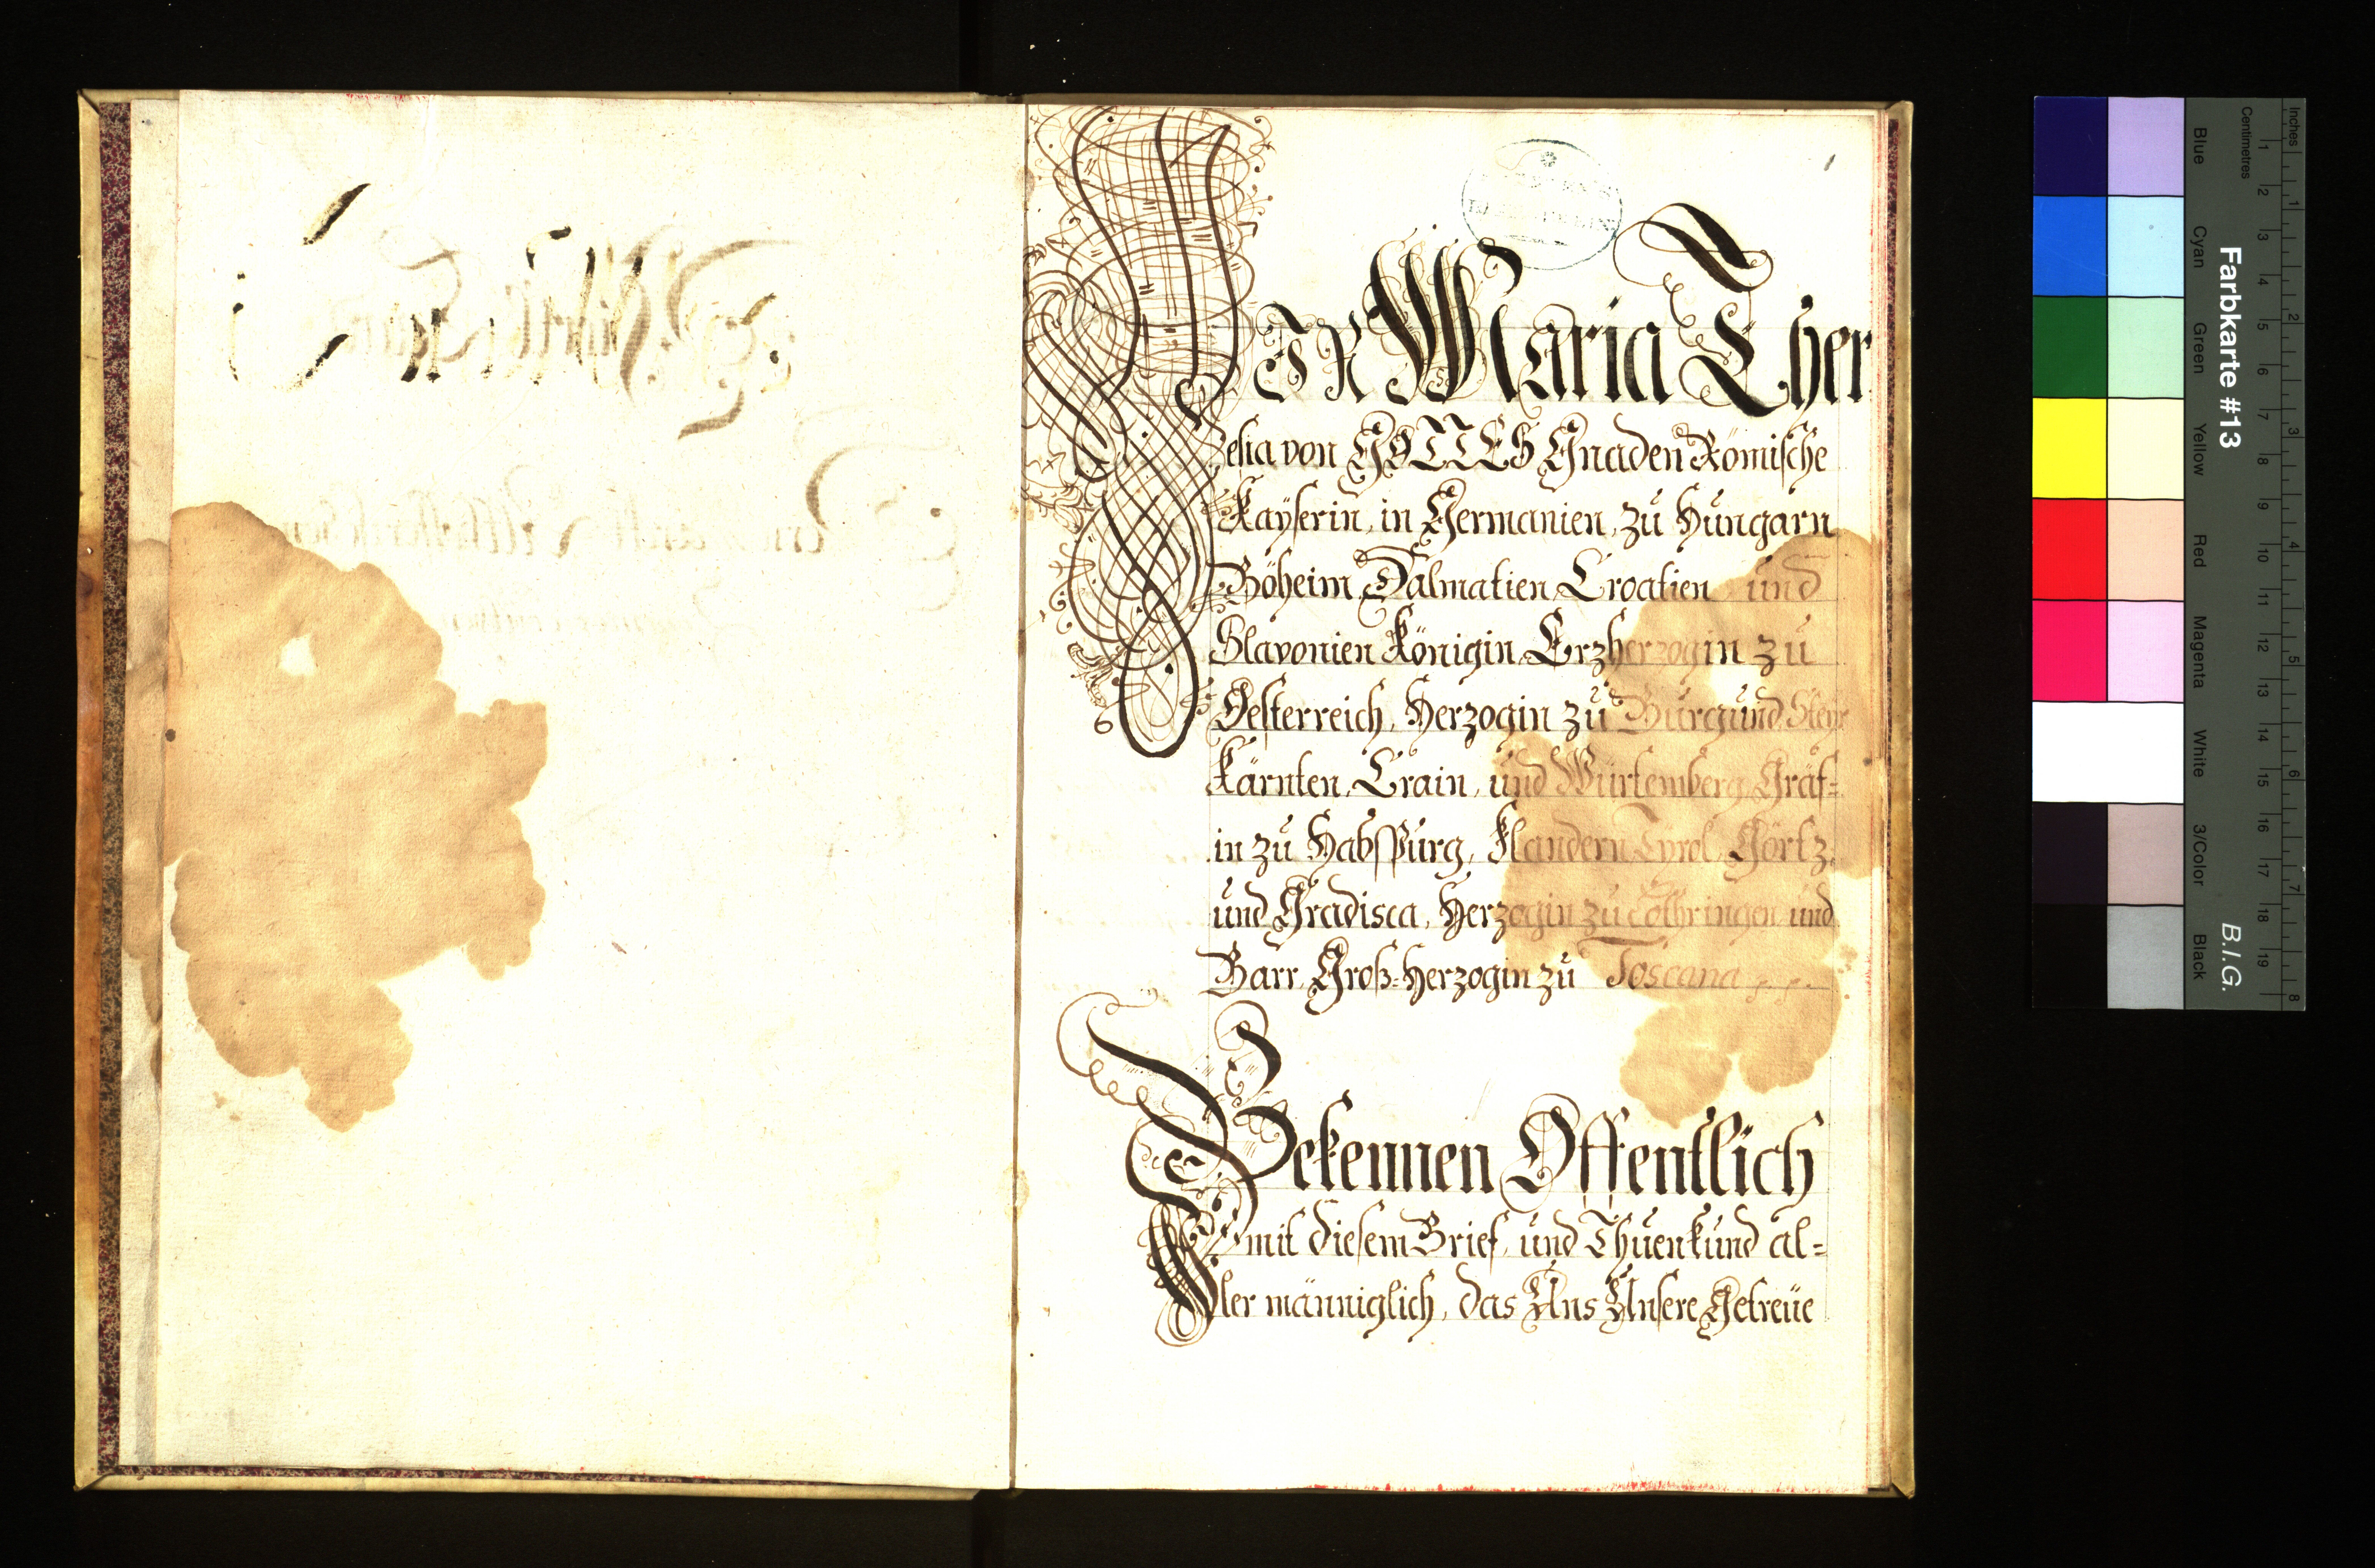 1
WIR Maria Ther
esia von GOTTES Gnaden Römische
Kaÿserin, in Germanien, zu Hungarn
Böheim, Dalmatien, Croatien und
Slavonien Königin, Erzherzogin zu
Oesterreich, Herzogin zu Burgund, Steÿr
Kärnten, Crain, und Würtemberg, Gräf=
in zu Habspurg, Flandern, Tyrol, Görtz,
und Gradisca, Herzogin zu Lothringen und
Barr, Groß=Herzogin zu Toscana
Bekennen Offentlich
mit diesem Brief, und Thuen kund al=
ler männiglich, das Uns Unsere Getreüe
Farbkarte #13
B.I.G.
Inches
Centimetres
1 2 3 4 5 6 7 8 9 10 11 12 13 14 15 16 17 18 19
1 2 3 4 5 6 7 8
Blue
Cyan
Green
Yellow
Red
Magenta
White
3/Color
Black